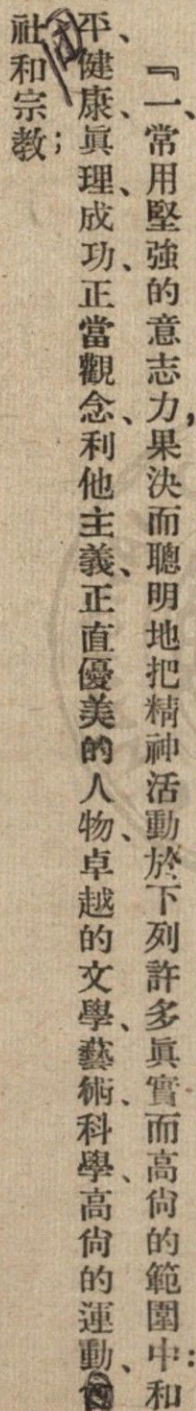 『一、常用堅強的意志力，果決而聰明地把精神活動於下列許多眞實而高尙的範圍中：和
平、健康、眞理、成功、正當觀念、利他主義、正直優美的人物、卓越的文學、藝術、科學、高尙的運動、
社和宗教；